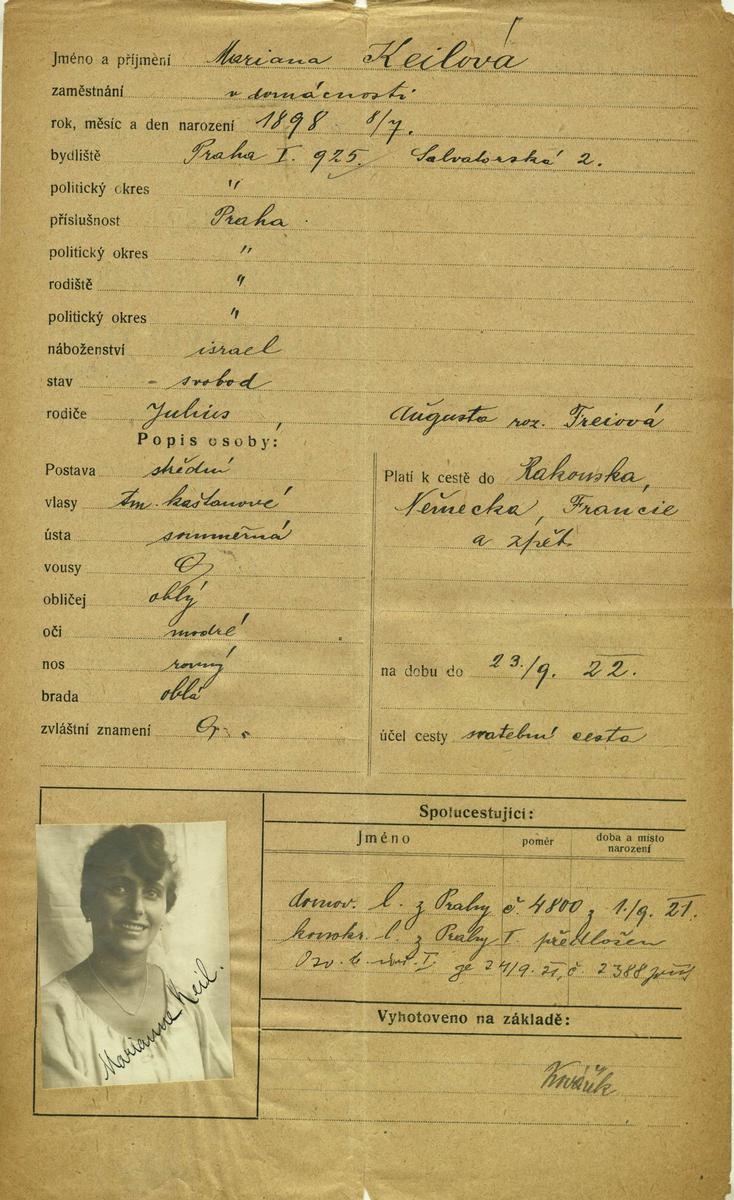 Jméno a příjmení Mariana Keilová
zaměstnání v domácnosti
rok, měsíc a den narození 1898 8/7.
bydliště Praha I. 925. Salvatorská 2.
politický okres "
příslušnost Praha
politický okres "
rodiště "
politický okres "
náboženství israel
stav - svobod
rodiče Julius, Augusta roz. Freiová
Popis osoby:
Postava střední
vlasy tm. kaštanové
ústa souměrná
vousy
obličej oblý
oči modré
nos rovný
brada oblá
zvláštní znamení
Platí k cestě do Rakouska,
Německa, Francie
a zpět
na dobu do 23./9. 22.
účel cesty svatební cesta
Marianne Keil.
Spolucestující:
Jméno poměr doba a místo narození
domov. l. z Prahy č. 4800 z 1./9. 21.
konskr. l. z Prahy I předložen
I. ze 24/9. 21, č. 2388
Vyhotoveno na základě:
Kovářík